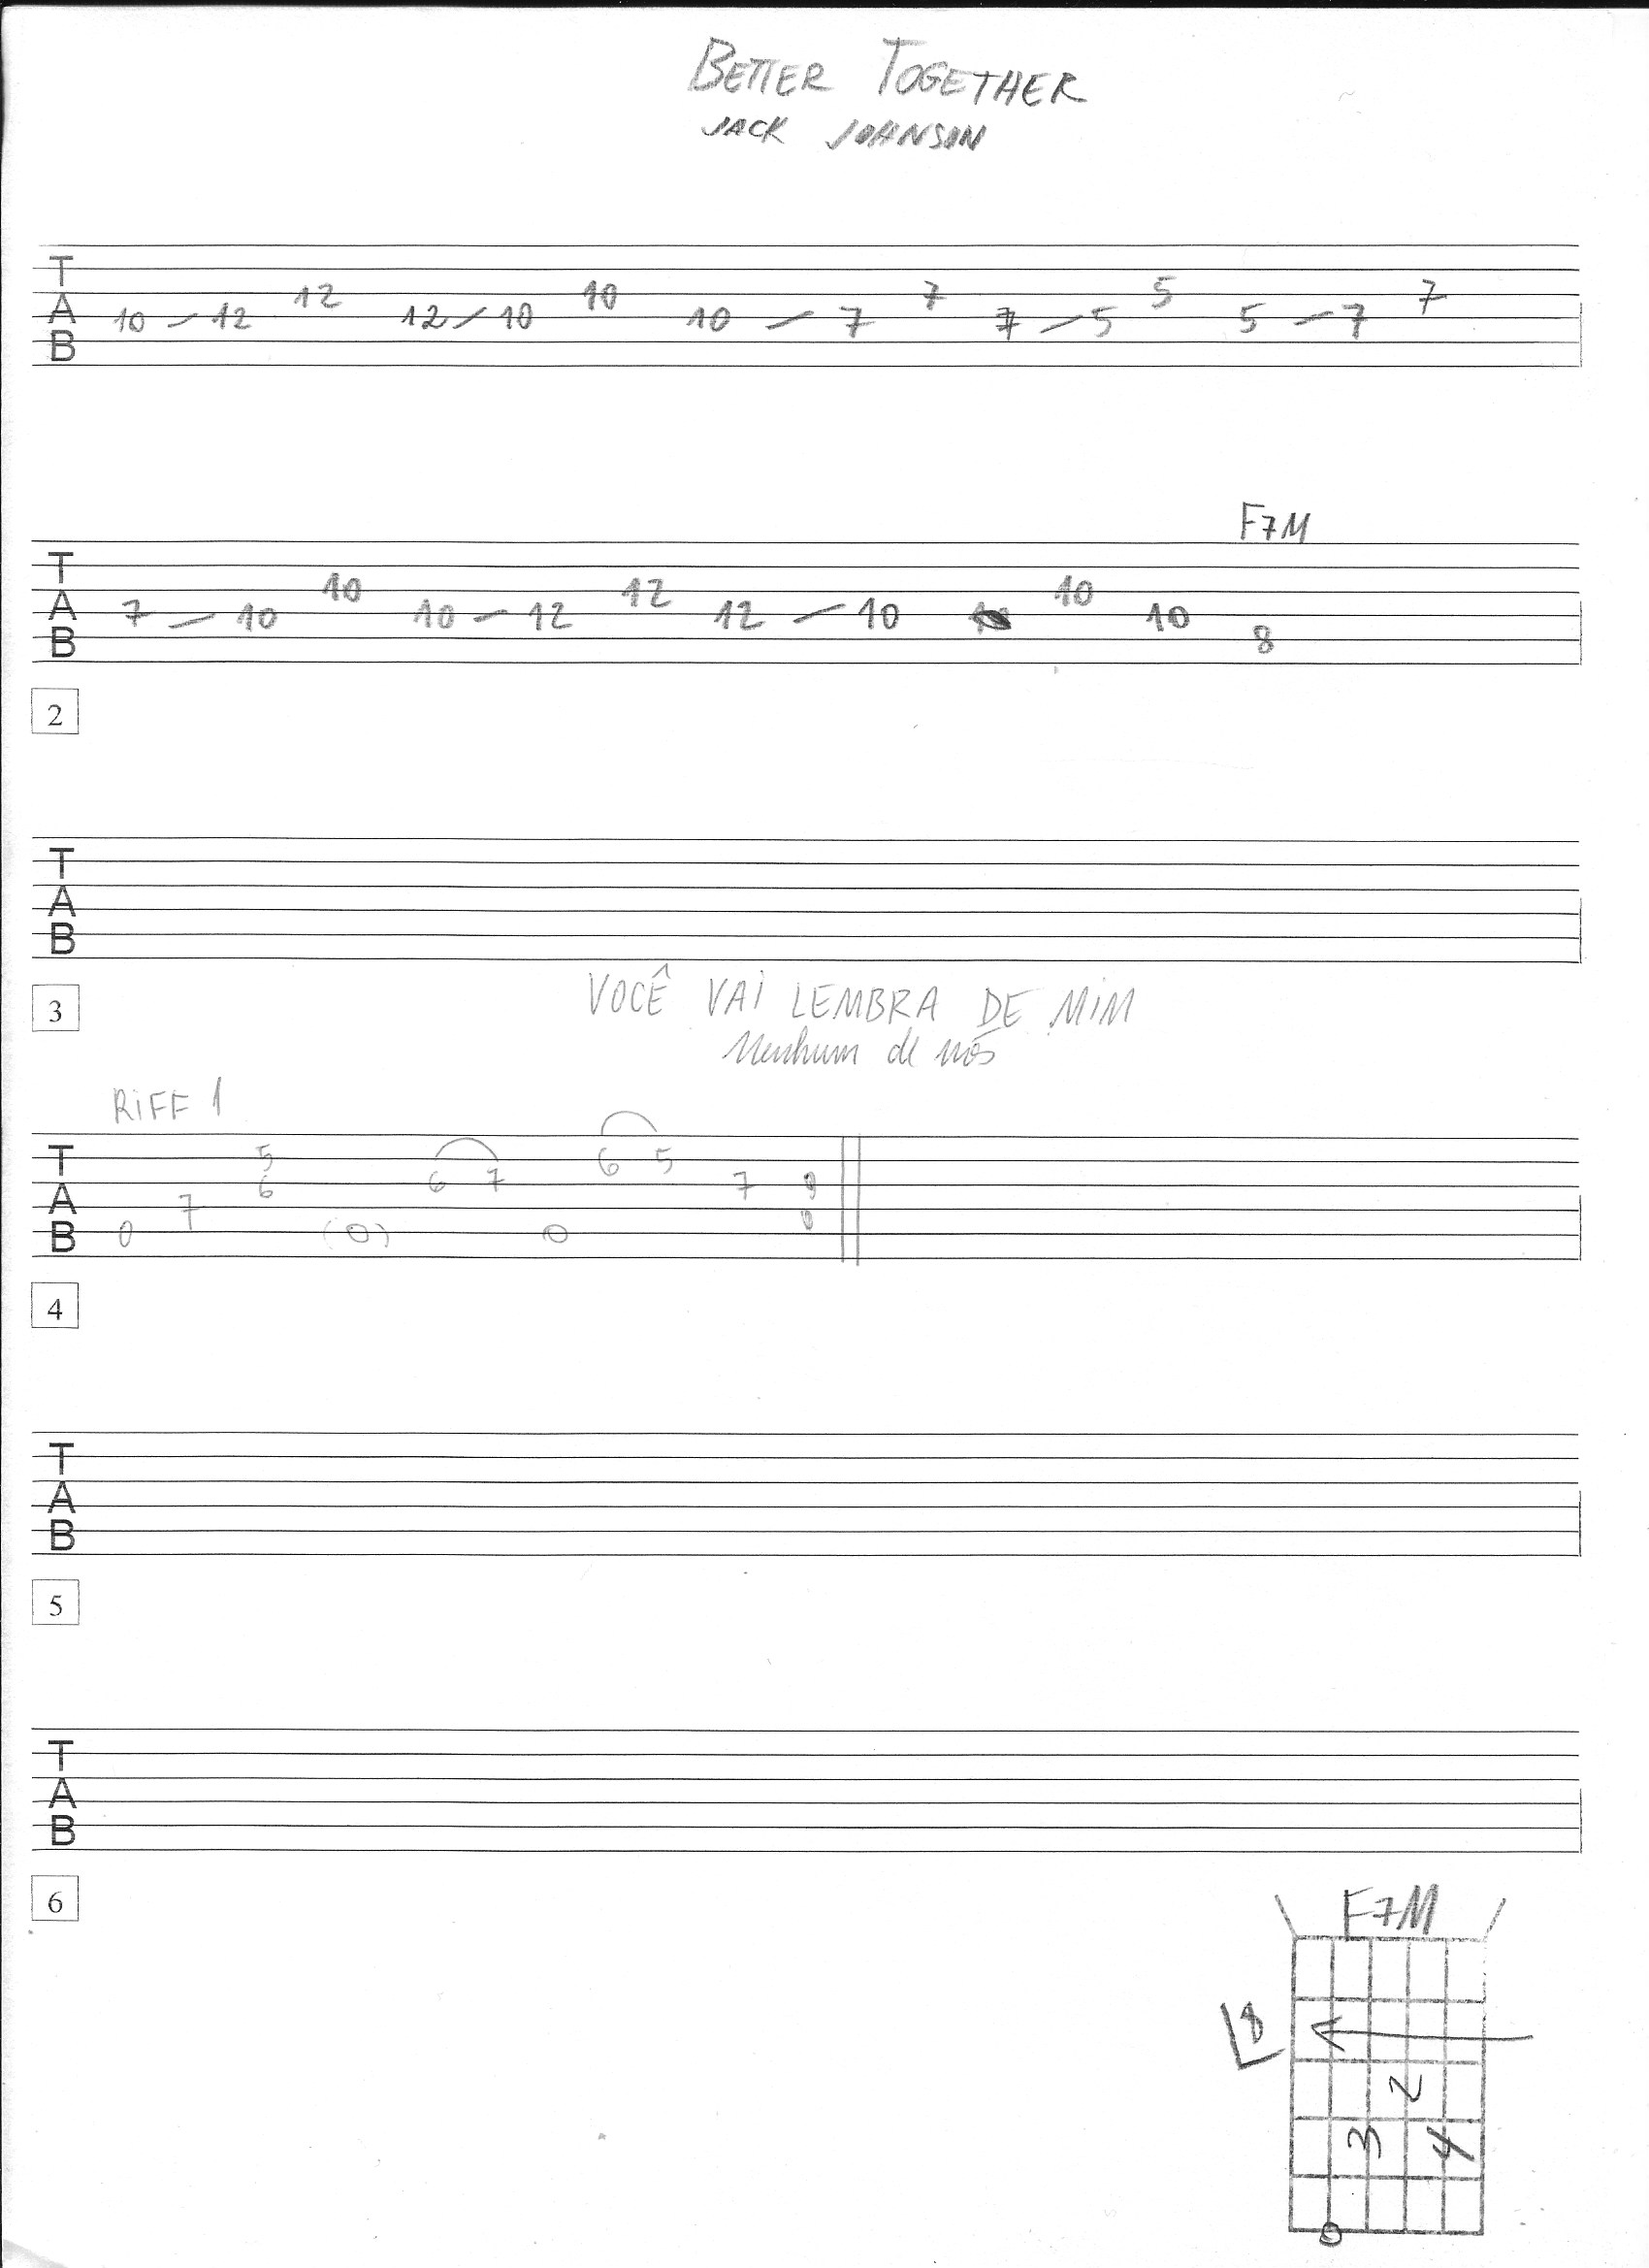 BETTER TOGETHER
JACK JOHNSON
T
A
B
10 – 12 12 12 – 10 10 10 – 7 7 7 – 5 5 5 – 7 7
F7M
T
A
B
7 – 10 10 10 – 12 12 12 – 10 10 10 8
2
T
A
B
3
VOCÊ VAI LEMBRA DE MIM
Nenhum de nós
RIFF 1
T
A
B
0 7 5 6 (0) 6 7 0 6 5 7
4
T
A
B
5
T
A
B
6
F7M
8
2
3 4